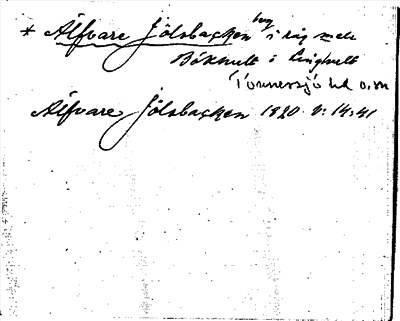 * Älfvare Jölsbacken beg i sig mellan
Bökhult o Linghult
Tönnersjö hd o. sn
Älfvare Jölsbacken 1820 V: 14:41